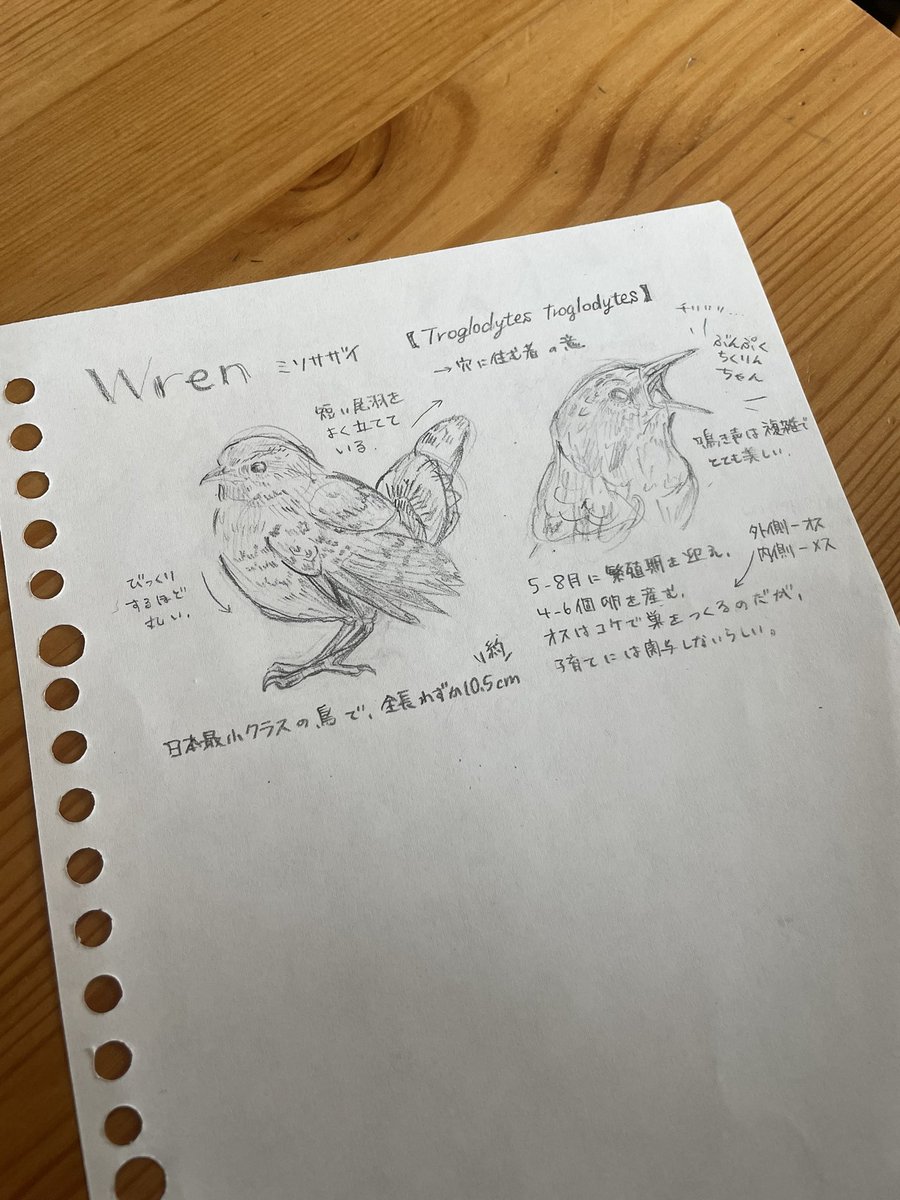 Wren ミソサザイ 【Troglodytes troglodytes】
→穴に住む者 の意
短い尾羽を
よく立てて
いる.
チリリリリ…
ぶんぷく
ちくりん
ちゃん
鳴き声は複雑で
とても美しい.
びっくり
するほど
丸い.
外側ーオス
内側ーメス
5-8月に繁殖期を迎え、
4-6個卵を産む.
オスはコケで巣をつくるのだが、
子育てには関与しないらしい。
約
日本最小クラスの鳥で、全長わずか10.5cm